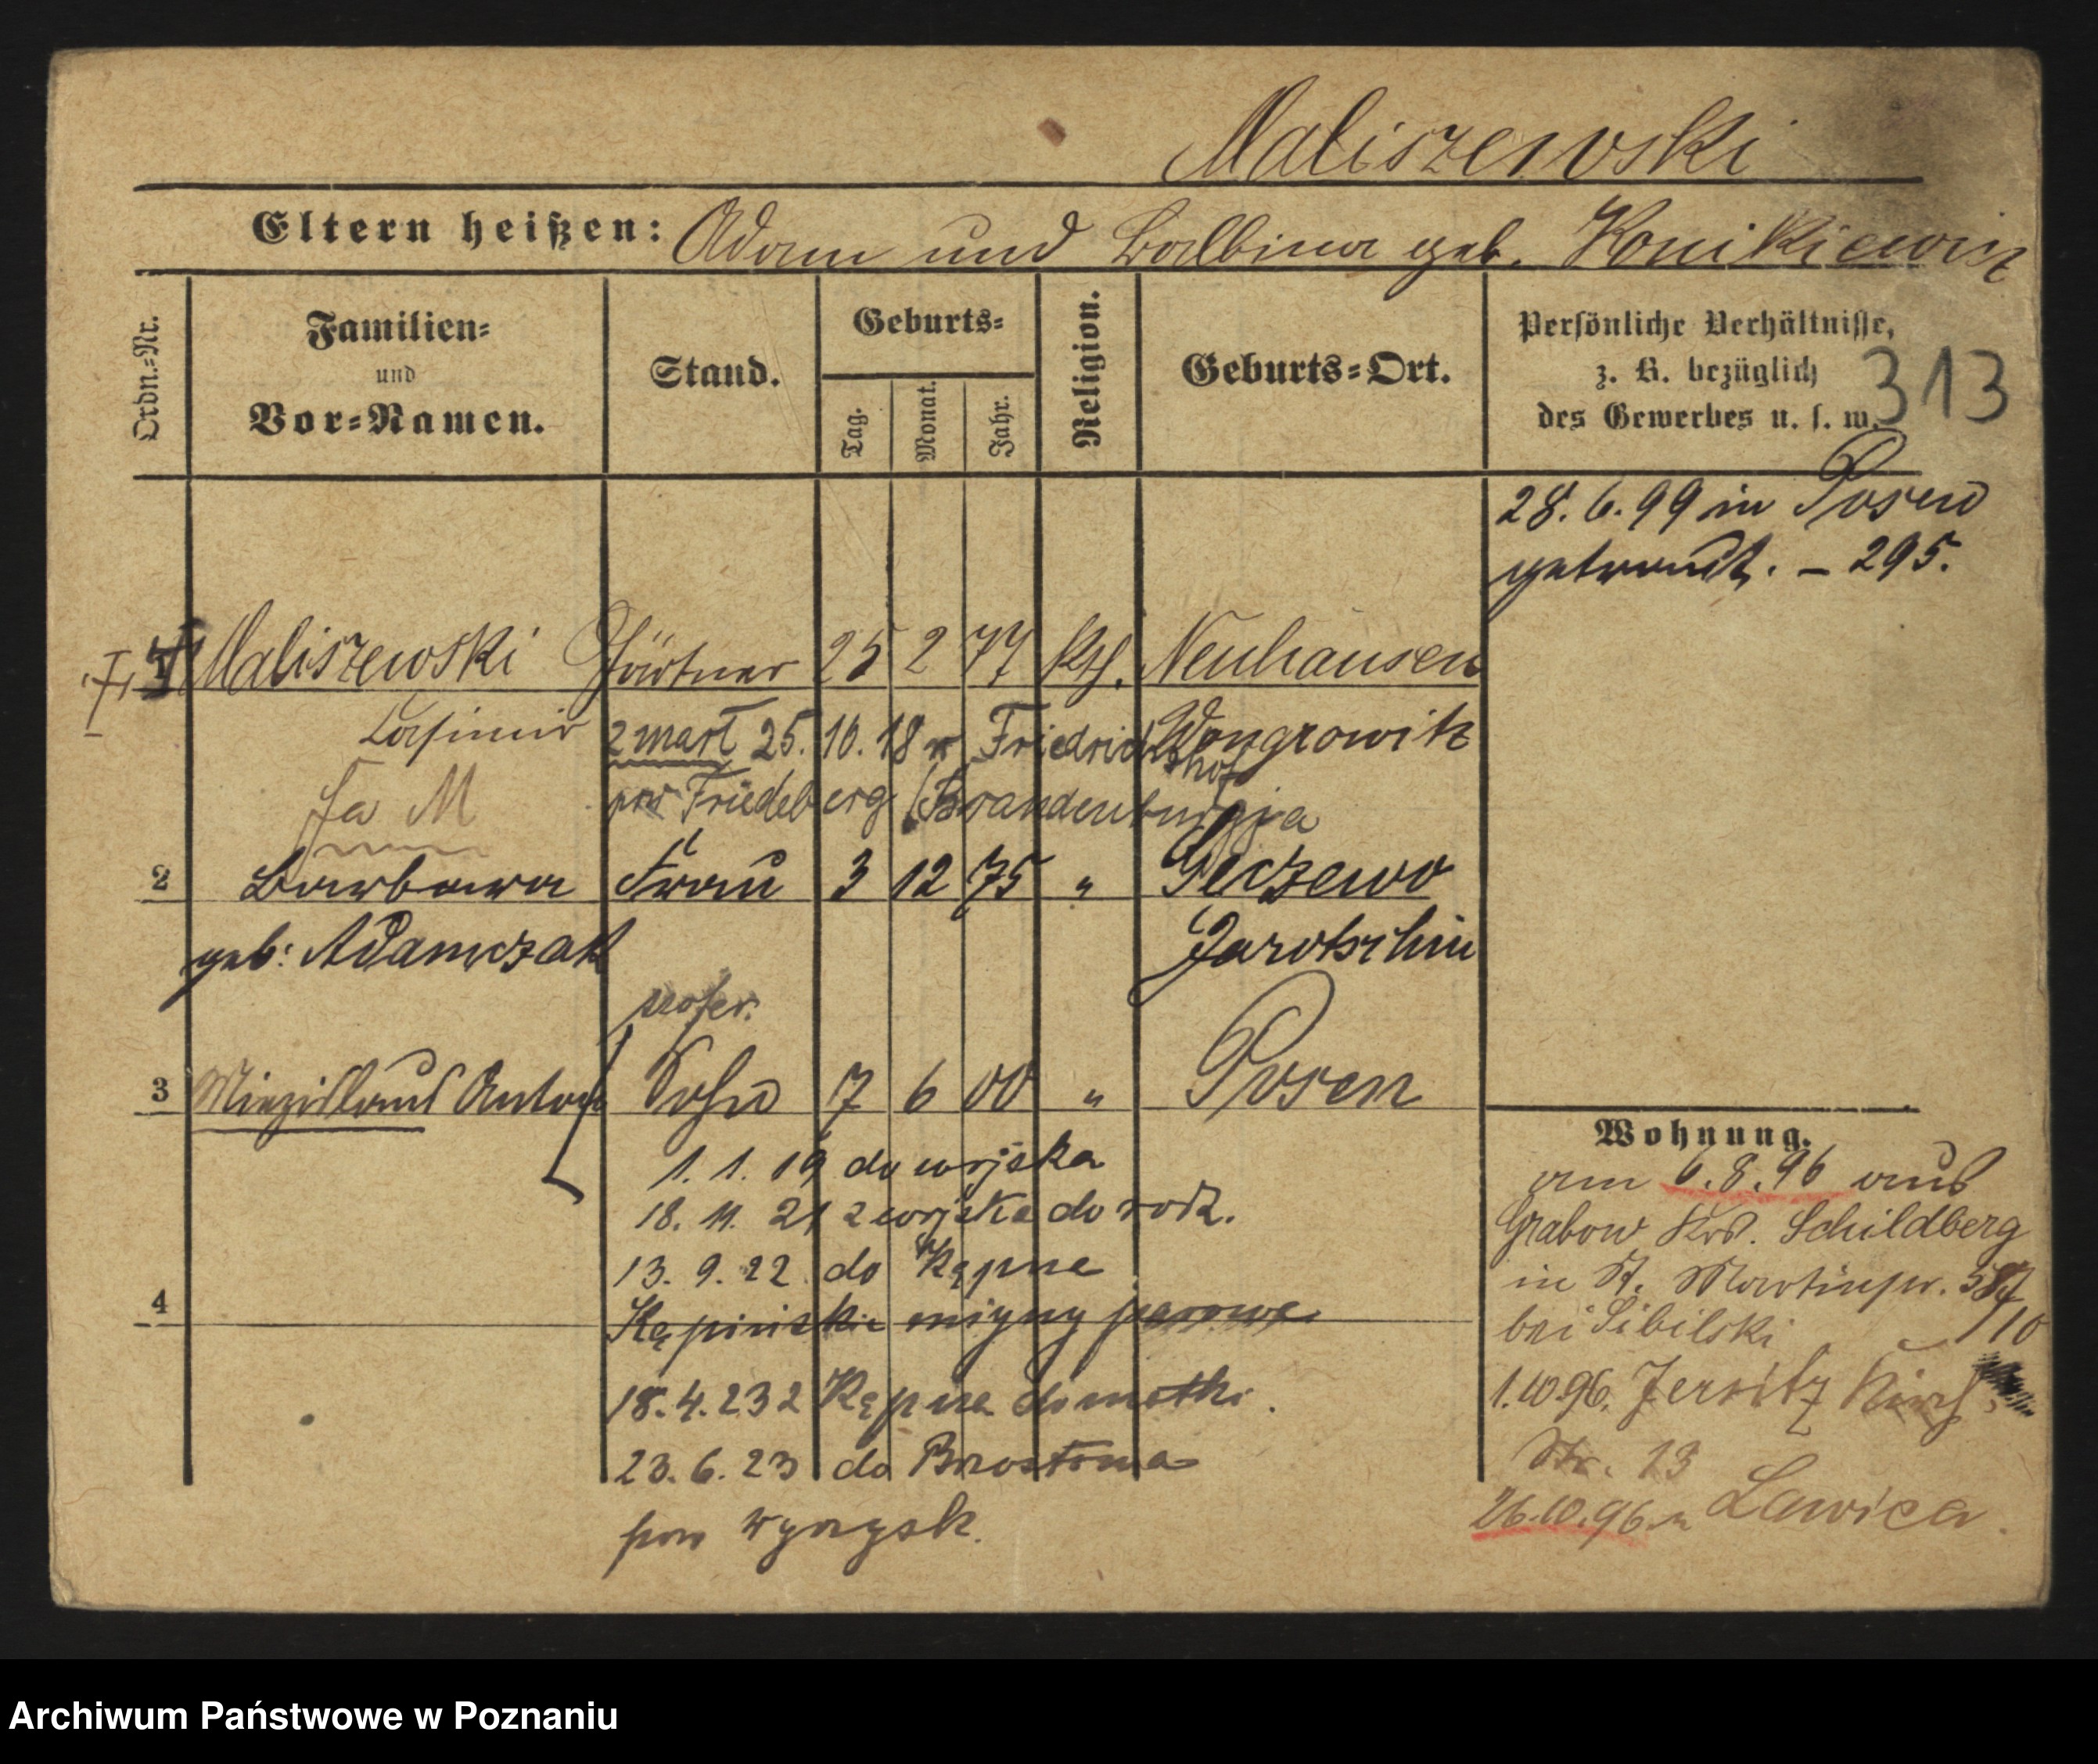 Maliszewski
Eltern heißen: Adam und Balbina geb. Konikiewicz
Ordn.-Nr.
Familien-
und
Vor-Namen.
Stand.
Geburts-
Tag.
Monat.
Jahr.
Religion.
Geburts-Ort.
Persönliche Verhältnisse,
z. B. bezüglich
des Gewerbes u. s. w.
313
28. 6. 99 in Posen
getraut. – 295.
Maliszewski Gärtner 25 2 77 kth. Neuhausen
Casimir
Wongrowitz
zmarł 25. 10. 18 w Friedrichshof
pow Friedeberg (Brandenburgja
Fa M
2 Barbara Frau 3 12 75 " Geczewo
geb: Adamczak Jarotschin
3 Miezislaus Anton Sohn 7 6 00 " Posen
1. 1. 19 do wojska
18. 11. 21 z wojska do rodz.
13. 9. 22 do Kępna
4
Kępiński młyny parowe
18. 4. 23 z Kępna do matki.
23. 6. 23 do
pow Wyrzysk.
Wohnung.
am 6. 8. 96 aus
Grabow Krs. Schildberg
in St. Martinstr.
bei Sibilski
1. 10 96. Jersitz Kirch
Str. 13
26. 10. 96. n Lawica.
Archiwum Państwowe w Poznaniu